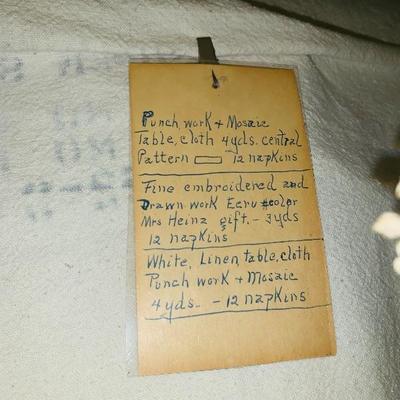 Punch work + Mosaic
Table, cloth 4yds. central
Pattern 12 napkins
Fine embroidered and
Drawn work Ecru color
Mrs Heinz gift. - 3yds
12 napkins
White, Linen, table, cloth
Punch work + Mosaic
4yds. - 12 napkins